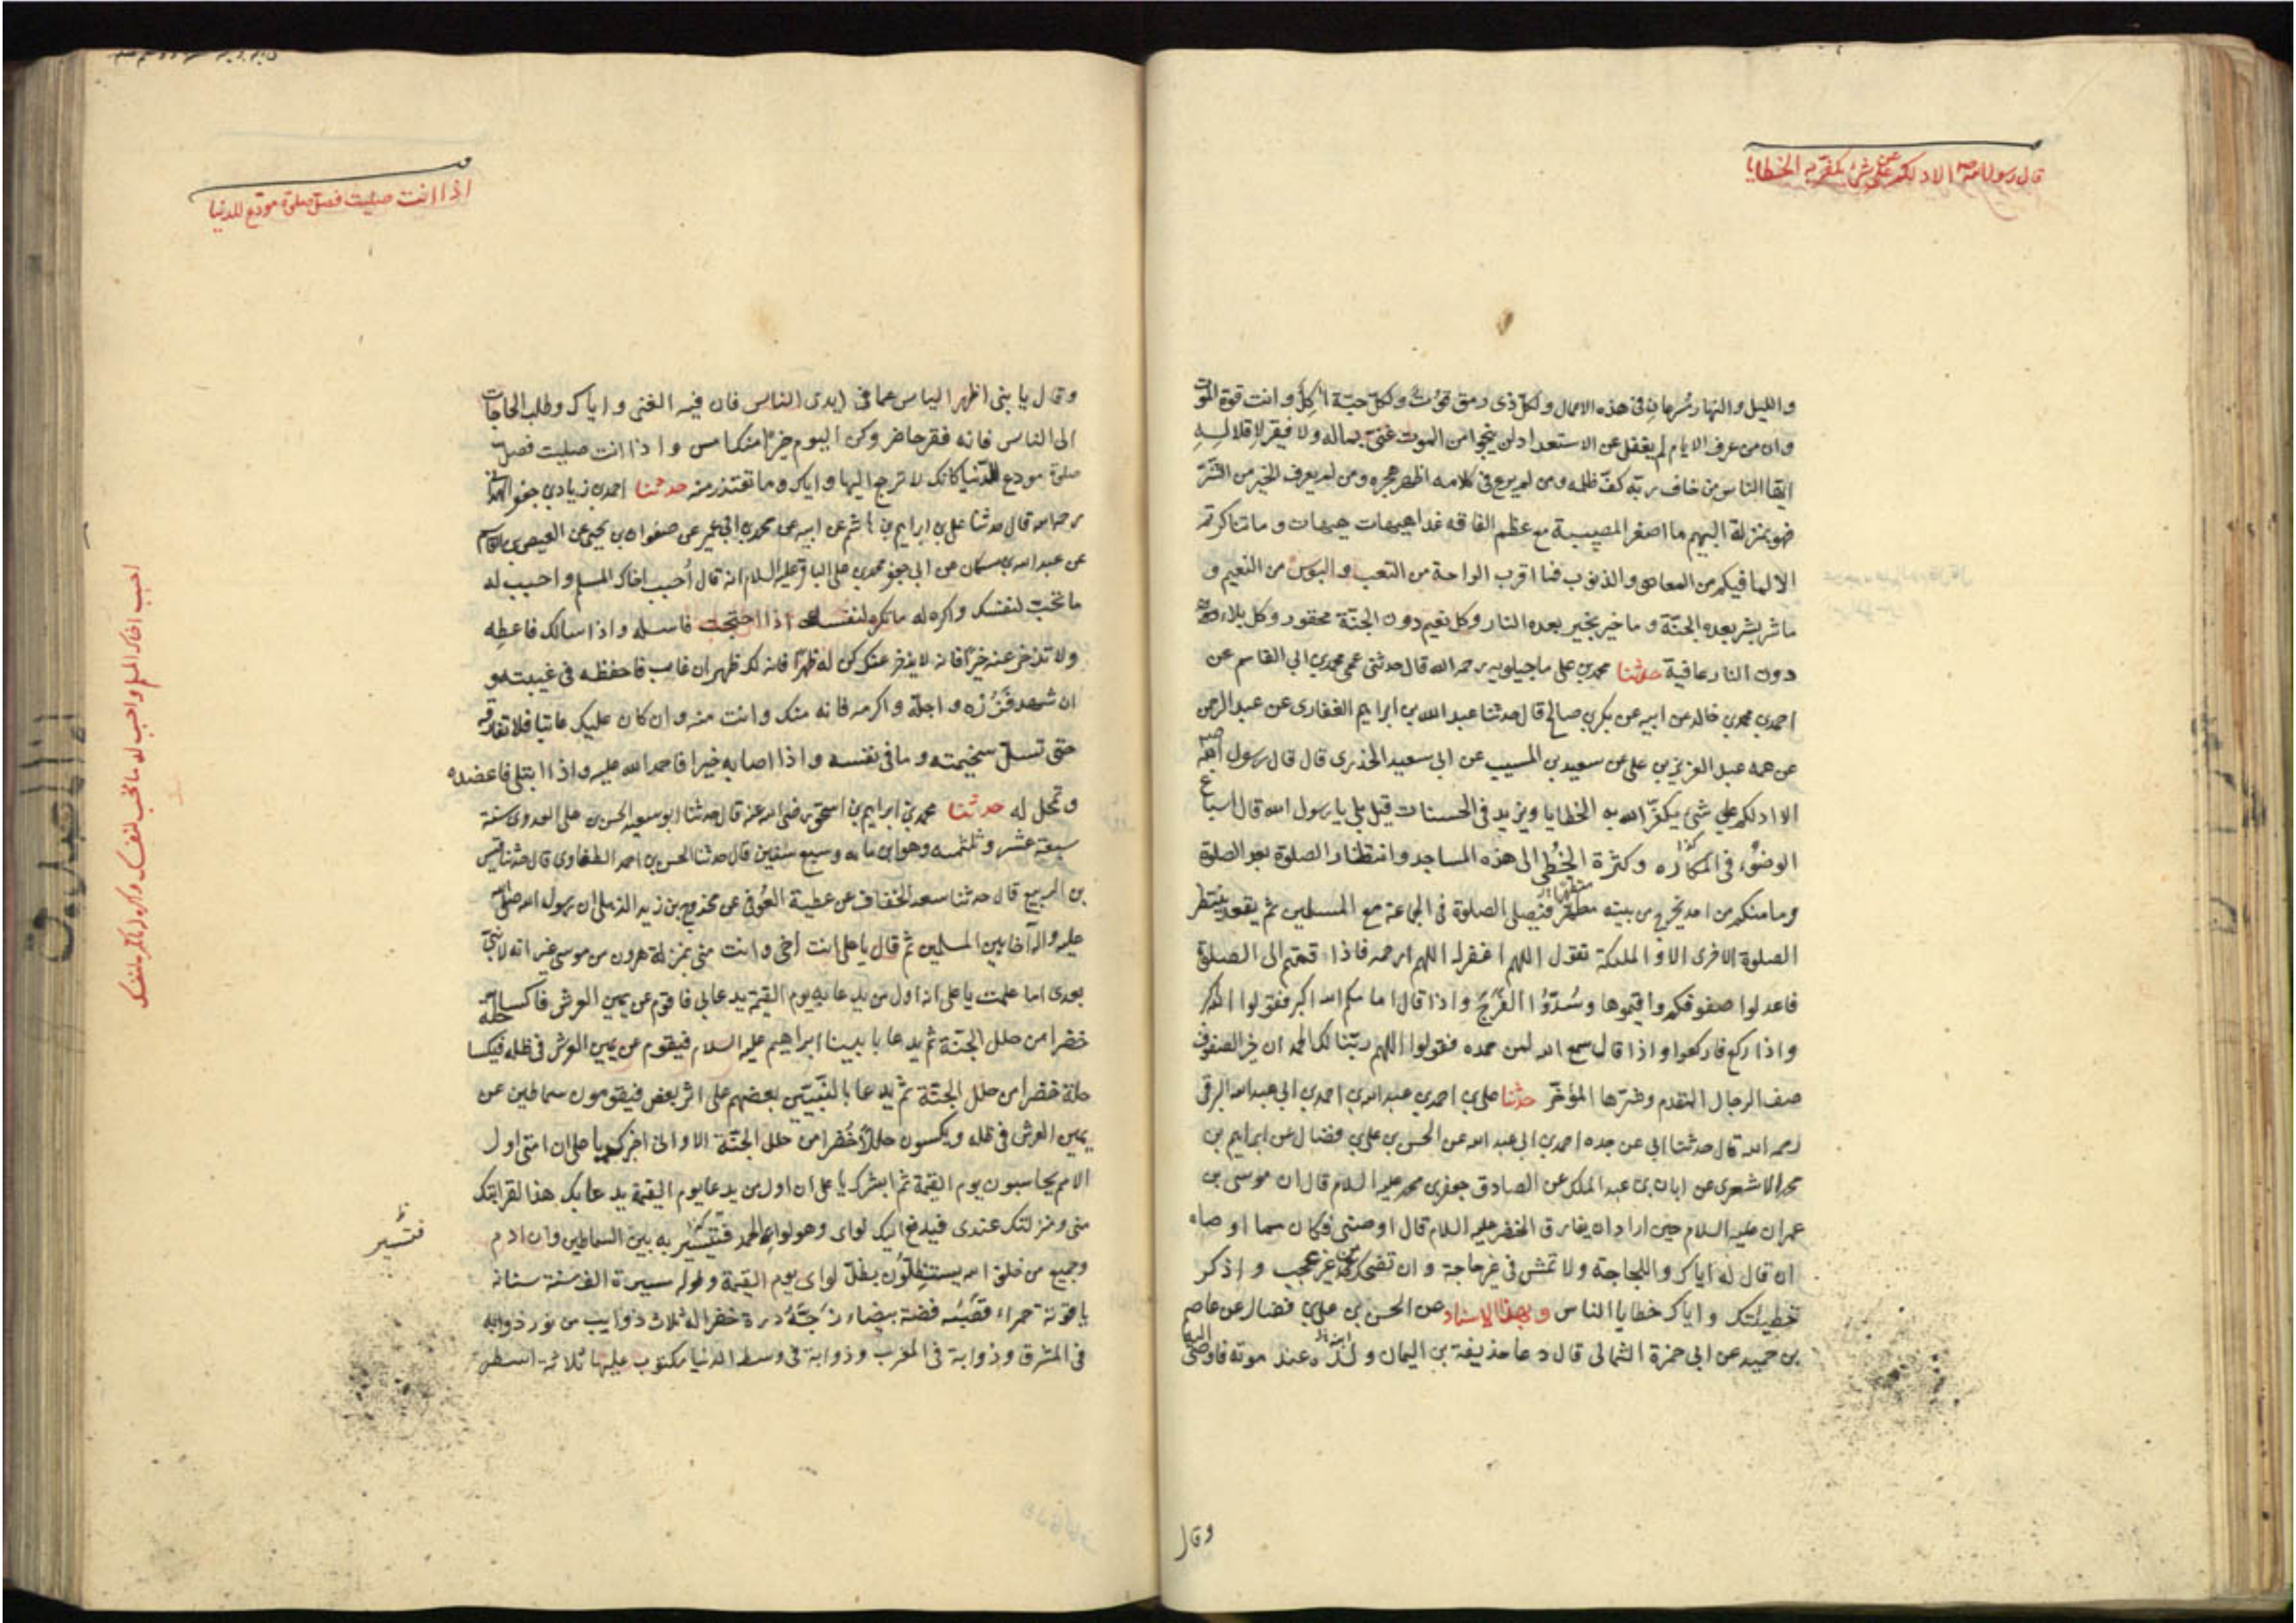 قال رسول الله ص الا ادلكم على شئ يكفر به الخطايا
والليل والنهار مسرعان في هذه الاعمال ولكل ذى رمق قوت ولكل حبة آكل وانت قوة الموت
وان من عرف الايام لم يغفل عن الاستعداد لن ينجوا من الموت غنى بماله ولا فقير لاقلاله
ايها الناس من خاف ربه كف ظلمه ومن لم يرع في كلامه اظهر هجره ومن لم يعرف الخير من الشر
فهو بمنزلة البهيم ما اصغر المصيبة مع عظم الفاقه غدا هيهات هيهات وما تناكرتم
الا لما فيكم من المعاصى والذنوب فما اقرب الراحة من التعب والبؤس من النعيم و
ما شر بشر بعده الجنة وما خير بخير بعده النار وكل نعيم دون الجنة محقور وكل بلاء
دون النار عافية حدثنا محمد بن على ماجيلويه رحمه الله قال حدثنى عمى محمد بن ابي القاسم عن
احمد بن محمد بن خالد عن ابيه عن بكر بن صالح قال حدثنا عبد الله بن ابراهيم الغفارى عن عبد الرحمن
عن عمه عبد العزيز بن على عن سعيد بن المسيب عن ابى سعيد الخدرى قال قال رسول الله ص
الا ادلكم على شئ يكفر الله به الخطايا ويزيد في الحسنات قيل بلى يا رسول الله قال اسباغ
الوضوء في المكاره وكثرة الخطى الى هذه المساجد وانتظار الصلوة بعد الصلوة
وما منكم من احد يخرج من بيته متطهرا فيصلى الصلوة في الجماعة مع المسلمين ثم يقعد ينتظر
الصلوة الاخرى الا والملئكة تقول اللهم اغفر له اللهم ارحمه فاذا قمتم الى الصلوة
فاعدلوا صفوفكم واقيموها وسدوا الفرج واذا قال امامكم الله اكبر فقولوا الله اكبر
واذا ركع فاركعوا واذا قال سمع الله لمن حمده فقولوا اللهم ربنا لك الحمد ان خير الصفوف
صف الرجال المتقدم وشرها المؤخر حدثنا على بن احمد بن عبد الله بن احمد بن ابي عبد الله البرقى
رحمه الله قال حدثنا ابي عن جده احمد بن ابى عبد الله عن الحسن بن على بن فضال عن ابراهيم بن
محمد الاشعرى عن ابان بن عبد الملك عن الصادق جعفر بن محمد عليه السلام قال ان موسى بن
عمران عليه السلام حين اراد ان يفارق الخضر عليه السلام قال اوصنى فكان مما اوصاه
ان قال له اياك واللجاجة ولا تمش في غير حاجة وان تضحك من غير عجب واذكر
خطيئتك واياك خطايا الناس وبهذا الاسناد عن الحسن بن على بن فضال عن عاصم
بن حميد عن ابى حمزة الثمالى قال دعا حذيفة بن اليمان ابنه عند موته فاوصى اليه
وقال
اذا انت صليت فصل صلوة مودع للدنيا
وقال يا بنى اظهر الياس عما في ايدى الناس فان فيه الغنى واياك وطلب الحاجات
الى الناس فانه فقر حاضر وكن اليوم خيرا منك امس واذا انت صليت فصل
صلوة مودع للدنيا كانك لا ترجع اليها واياك وما تعتذر منه حدثنا احمد بن زياد بن جعفر الهمدانى
رحمه الله قال حدثنا على بن ابراهيم بن هاشم عن ابيه عن محمد بن ابى عمير عن صفوان بن يحيى عن العيص بن القاسم
عن عبد الله بن مسكان عن ابى جعفر محمد بن على الباقر عليه السلام انه قال أحبب اخاك المسلم واحبب له
ما تحب لنفسك واكره له ما تكره لنفسك اذا احتجت فاسله واذا سالك فاعطه
ولا تدخر عنه خيرا فانه لا يدخر عنك كن له ظهرا فانه لك ظهر ان غاب فاحفظه في غيبته و
ان شهد فزره واجله واكرمه فانه منك وانت منه وان كان عليك عاتبا فلا تفارقه
حتى تسل سخيمته وما في نفسه واذا اصابه خير فاحمد الله عليه واذا ابتلى فاعضده
وتمحل له حدثنا محمد بن ابراهيم بن اسحق رضى الله عنه قال حدثنا ابو سعيد الحسن بن على العدوى سنة
سبعة عشر وثلثمائه وهو ابن مايه وسبع سنين قال حدثنا الحسن بن احمد الطفاوى قال حدثنا قيس
بن الربيع قال حدثنا سعد الخفاف عن عطية العوفى عن مخدوج بن زيد الذهلى ان رسول الله صلى الله
عليه واله آخا بين المسلمين ثم قال يا على انت اخى وانت منى بمنزلة هرون من موسى غير انه لا نبى
بعدى اما علمت يا على انه اول من يدعا به يوم القيمة يدعا بى فاقوم عن يمين العرش فاكسا حلة
خضرا من حلل الجنة ثم يدعا بابينا ابراهيم عليه السلام فيقوم عن يمين العرش في ظله فيكسا
حلة خضرا من حلل الجنة ثم يدعا بالنبيين بعضهم على اثر بعض فيقومون سماطين عن
يمين العرش في ظله ويكسون حللا خضرا من حلل الجنة الا وانى اخبرك يا على ان امتى اول
الامم يحاسبون يوم القيمة ثم ابشرك يا على ان اول من يدعا يوم القيمة يدعا بك هذا لقرابتك
منى ومنزلتك عندى فيدفع اليك لواى وهو لواء الحمد فتسير به بين السماطين وان ادم
وجميع من خلق الله يستظلون بظل لواى يوم القيمة وطوله مسيرة الف سنة سنانه
ياقوتة حمراء قصبه فضة بيضاء زجه درة خضرا له ثلاث ذوايب من نور ذوابة
في المشرق وذوابة في المغرب وذوابة في وسط الدنيا مكتوب عليها ثلاثة اسطر
فتسير
احبب اخاك المسلم واحبب له ما تحب لنفسك واكره له ما تكره لنفسك